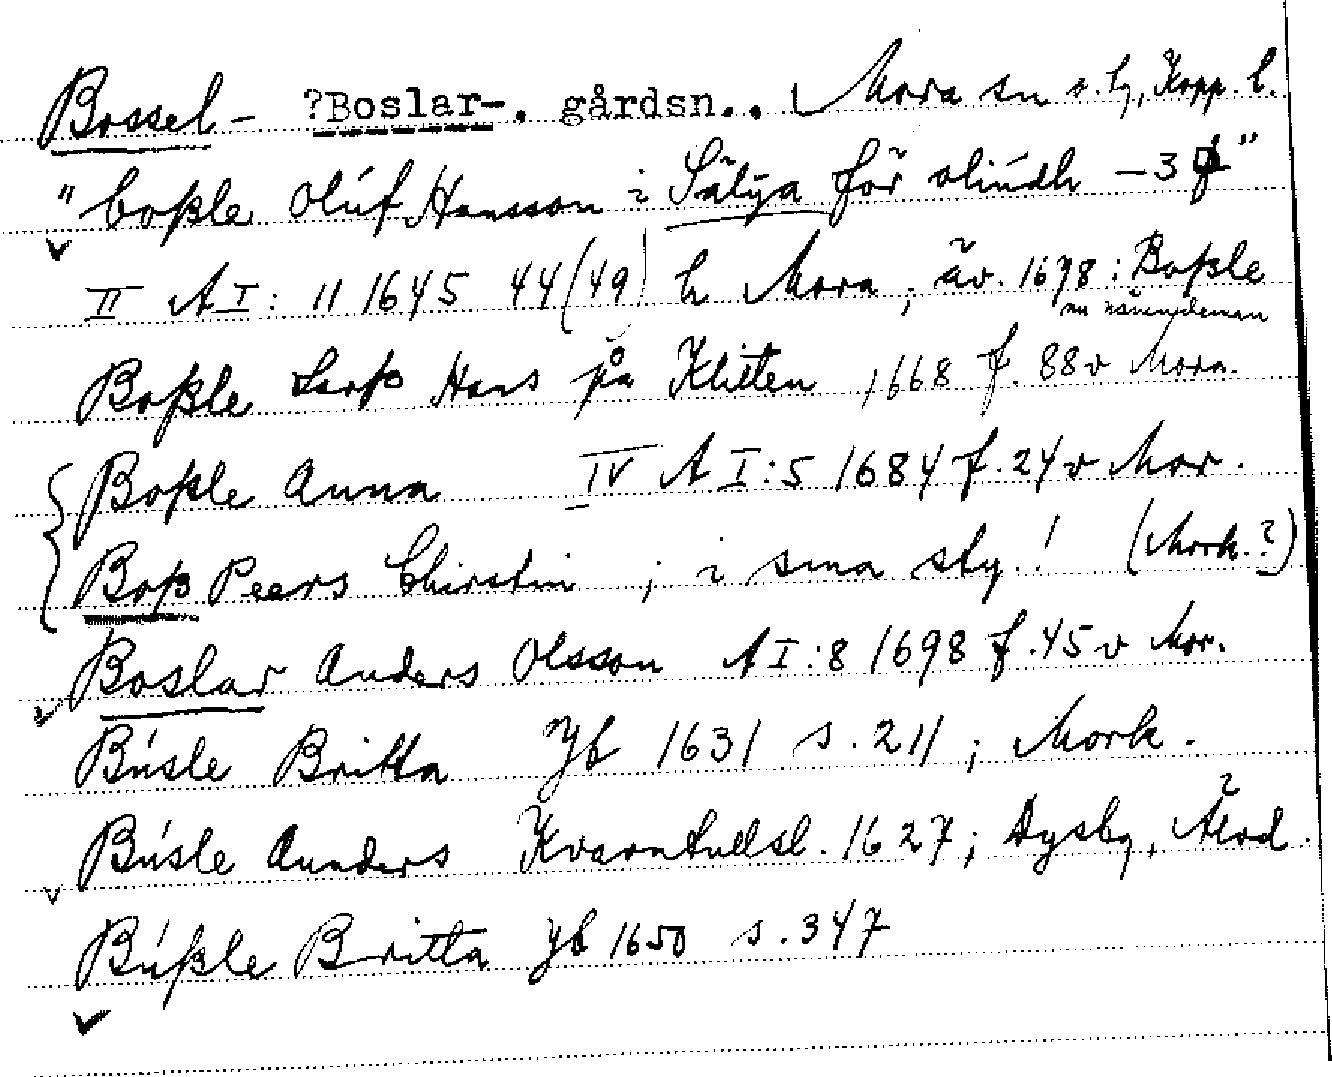 Bossel- ?Boslar-. gårdsn.. Mora sn o. hd, Kopp. l.
"boßle Olúf Hansson i Sälÿa för olúdh -3 "
II A I: 11 1645 44(49) h Mora; äv. 1678: Boßle
nu nämndeman
Boßle Larß Hans på Klitten 1668 f. 88v Mora.
Boßle Anna IV A I:5 1684 f. 24v Mor.
Boß Peers Chirstin ; i sma sky! (Mork.?)
Boslar Anders Olsson A I:8 1698 f. 45v Mor.
Búsle Britta Jb 1631 s. 211; Mork.
Búsle Aunders Kvarntullsl. 1627; Dysby, Älvd.
Búßle Britta Jb 1650 s. 347